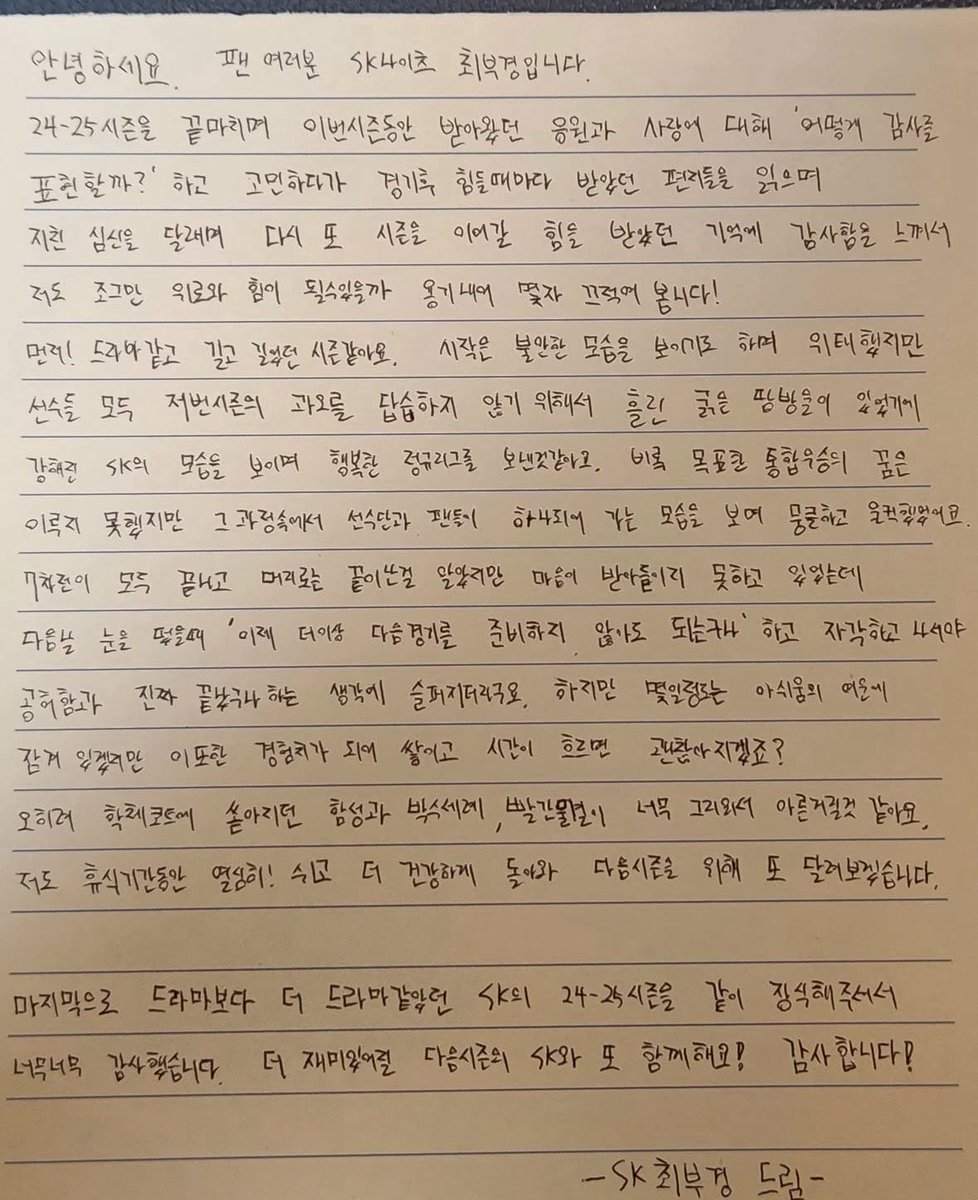 안녕하세요. 팬 여러분 SK나이츠 최부경입니다.
24-25시즌을 끝마치며 이번시즌동안 받아왔던 응원과 사랑에 대해 '어떻게 감사를
표현할까?' 하고 고민하다가 경기후 힘들때마다 받았던 편지들을 읽으며
지친 심신을 달래며 다시 또 시즌을 이어갈 힘을 받았던 기억에 감사함을 느껴서
저도 조그만 위로와 힘이 될수있을까 용기내어 몇자 끄적여 봅니다!
먼저! 드라마같고 길고 길었던 시즌같아요. 시작은 불안한 모습을 보이기도 하며 위태했지만
선수들 모두 저번시즌의 과오를 답습하지 않기 위해서 흘린 굵은 땀방울이 있었기에
강해진 SK의 모습을 보이며 행복한 정규리그를 보낸것같아요. 비록 목표한 통합우승의 꿈은
이루지 못했지만 그 과정속에서 선수단과 팬들이 하나되어 가는 모습을 보며 뭉클하고 울컥했었어요.
7차전이 모두 끝나고 머리로는 끝이난걸 알았지만 마음이 받아들이지 못하고 있었는데
다음날 눈을 떴을때 '이제 더이상 다음경기를 준비하지 않아도 되는구나' 하고 자각하고 나서야
공허함과 진짜 끝났구나 하는 생각에 슬퍼지더라구요. 하지만 몇일정도는 아쉬움의 여운에
잠겨 있겠지만 이또한 경험치가 되어 쌓이고 시간이 흐르면 괜찮아지겠죠?
오히려 학체코트에 쏟아지던 함성과 박수세례, 빨간물결이 너무 그리워서 아른거릴것 같아요.
저도 휴식기간동안 열심히! 쉬고 더 건강하게 돌아와 다음시즌을 위해 또 달려보겠습니다.
마지막으로 드라마보다 더 드라마같았던 SK의 24-25시즌을 같이 장식해주셔서
너무너무 감사했습니다. 더 재미있어질 다음시즌의 SK와 또 함께해요! 감사합니다!
-SK최부경 드림-